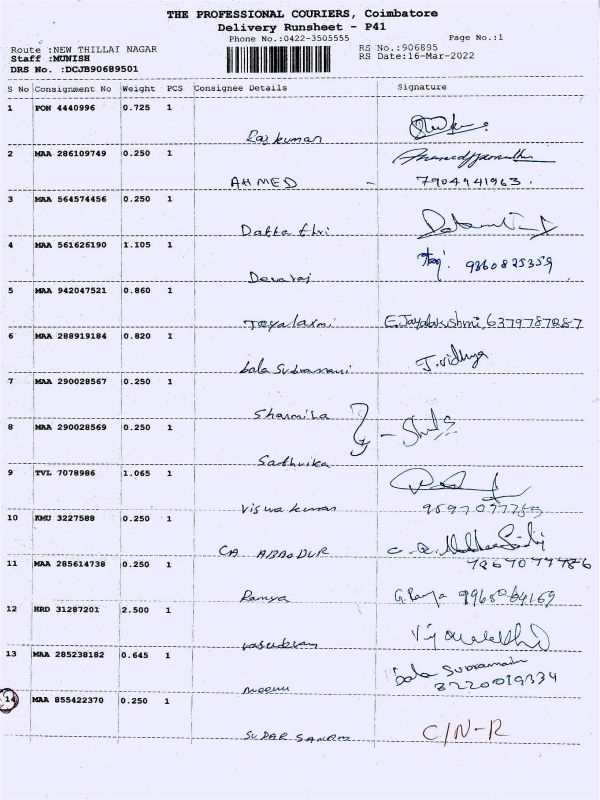 THE PROFESSIONAL COURIERS, Coimbatore
Delivery Runsheet - P41
Phone No.:0422-3505555 Page No.:1
Route :NEW THILLAI NAGAR RS No.:906895
Staff :MUNISH RS Date:16-Mar-2022
DRS No. :DCJB90689501
S No Consignment No Weight PCS Consignee Details Signature
1 PON 4440996 0.725 1
Rajkumar
2 MAA 286109749 0.250 1
AHMED - 7904941963.
3 MAA 564574456 0.250 1
Datta thri
4 MAA 561626190 1.105 1
Devaraj 9360825359
5 MAA 942047521 0.860 1
Jeyalaxmi E.Jayalakshmi, 6379787887
6 MAA 288919184 0.820 1
bala Subramani J.vidhya
7 MAA 290028567 0.250 1
Sharmila
8 MAA 290028569 0.250 1
Sathvika
9 TVL 7078986 1.065 1
Viswa kumar
10 KMU 3227588 0.250 1
CA.
11 MAA 285614738 0.250 1
Ramya G.Ramya
12 HRD 31287201 2.500 1
13 MAA 285238182 0.645 1
meenu bala Subramani
8220019334
14 MAA 855422370 0.250 1
SUDAR C/N-R